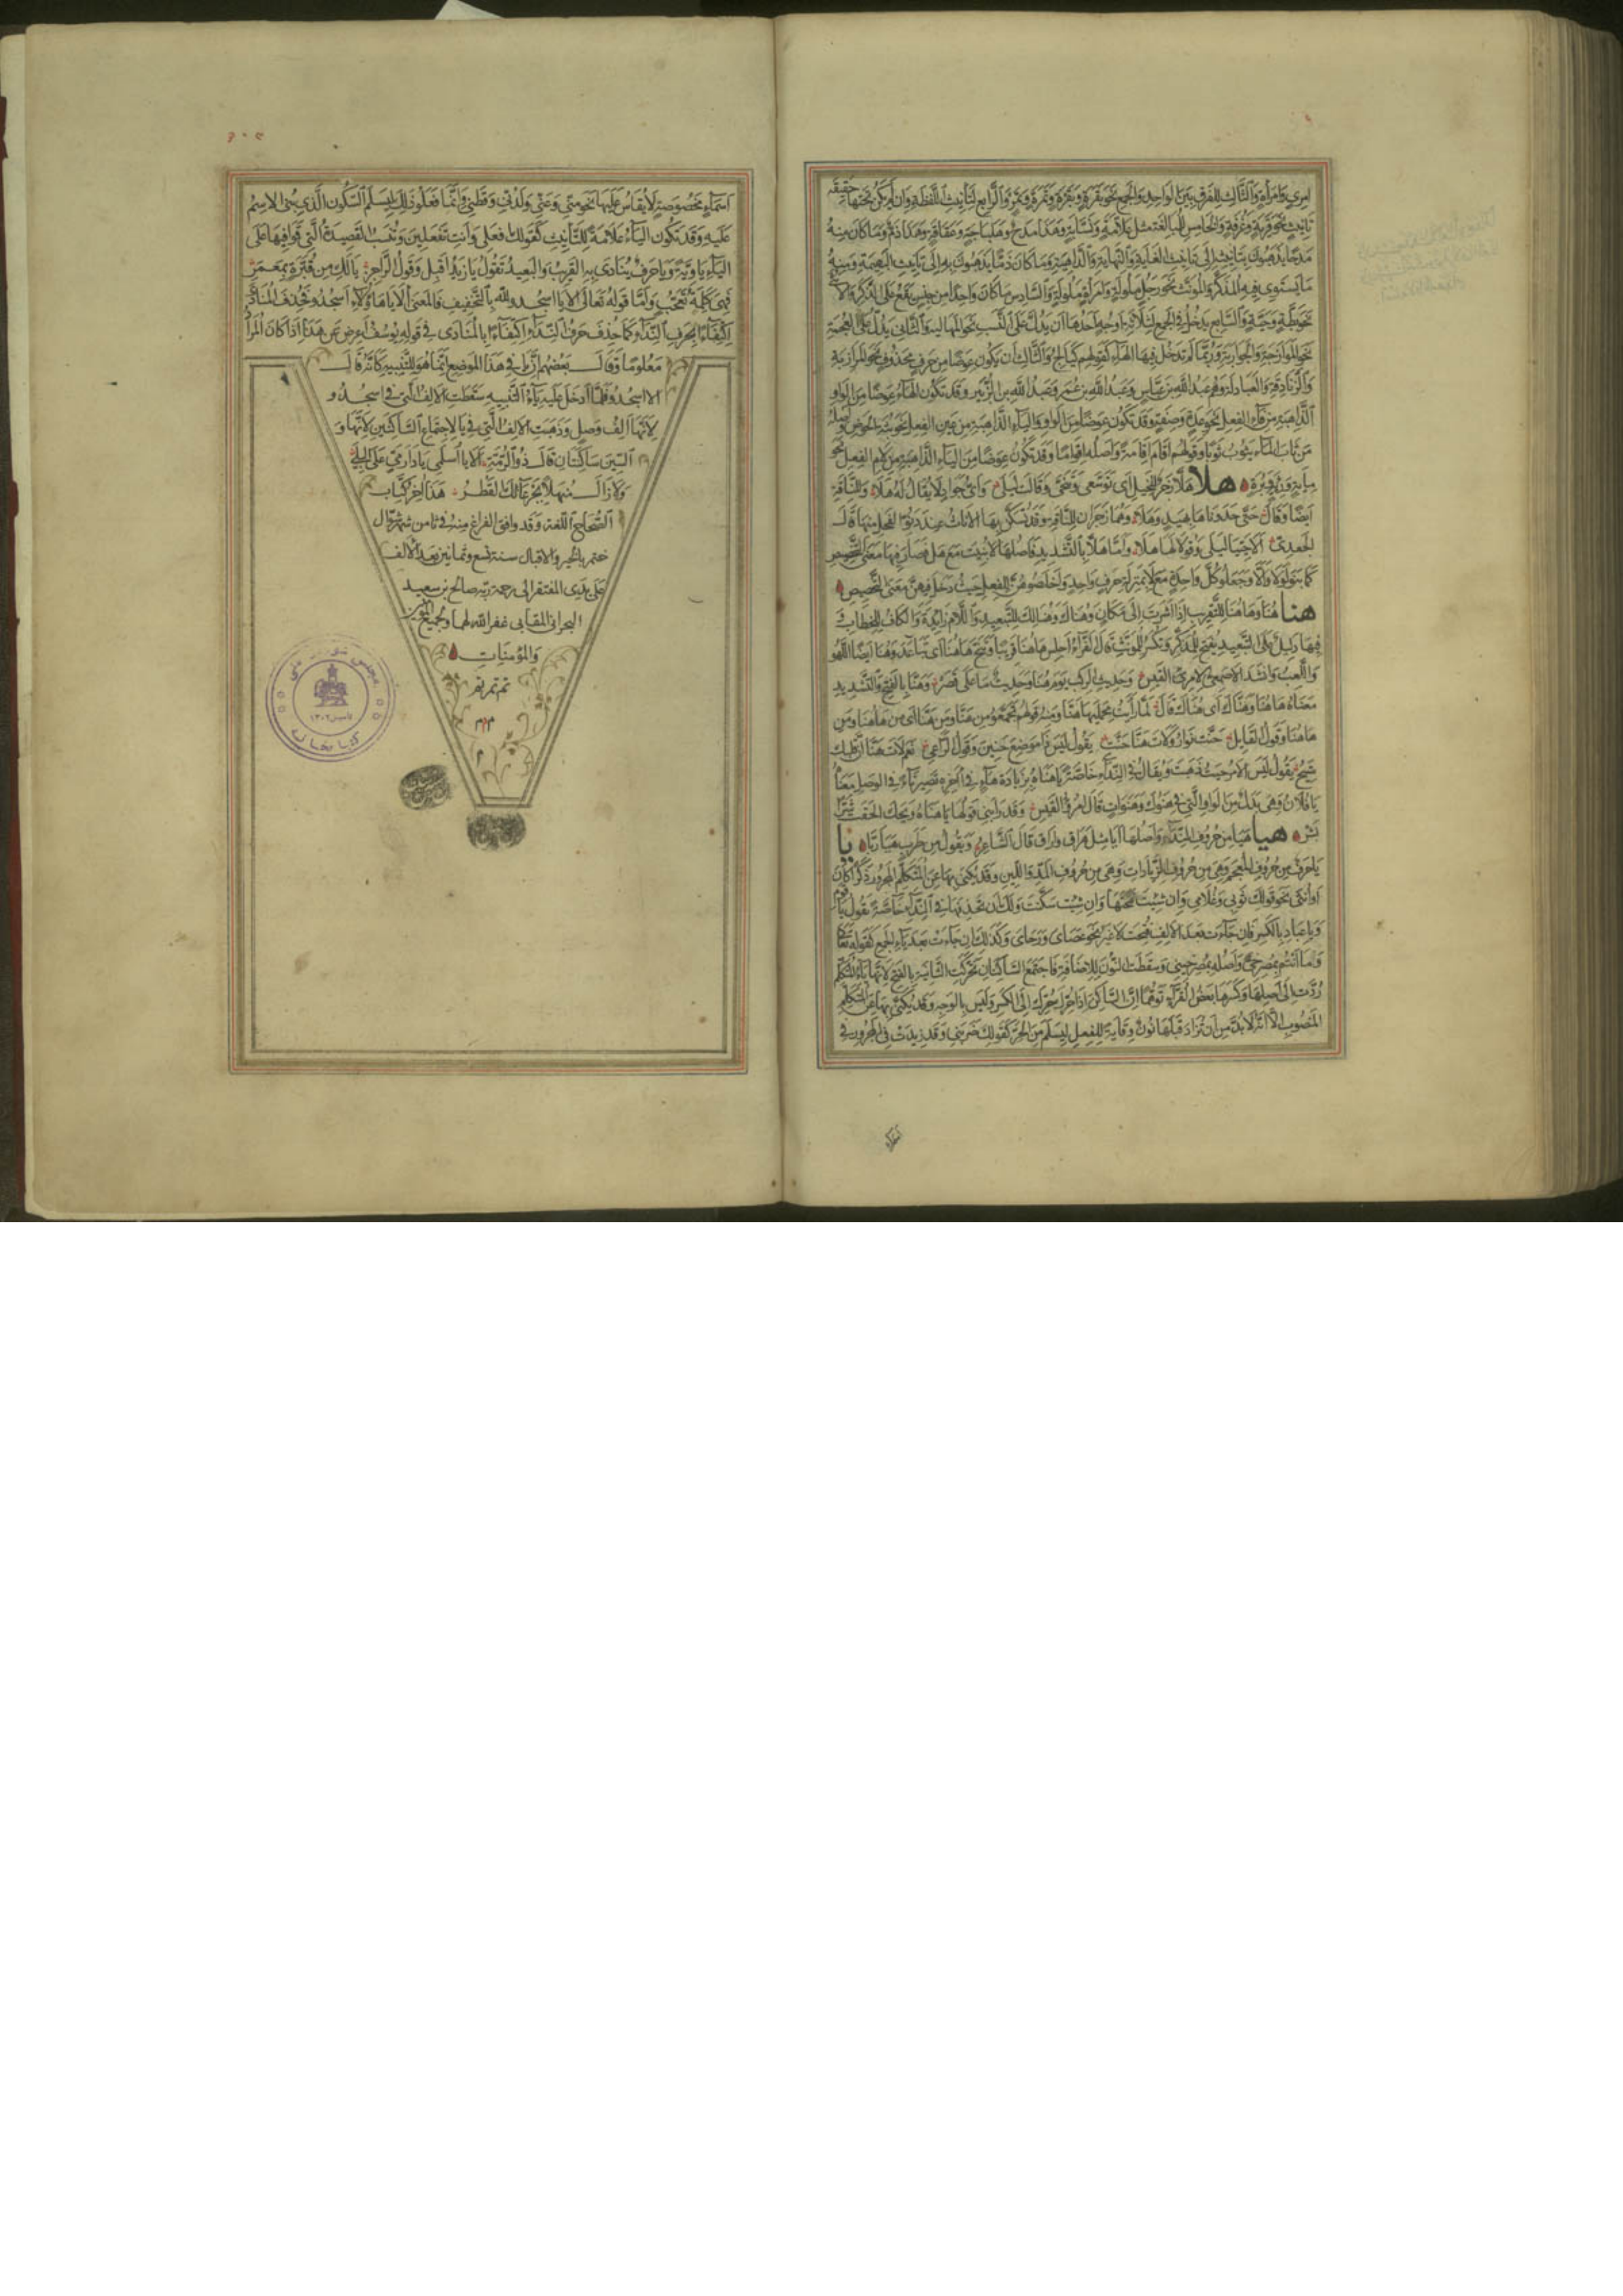 امرئ وامرأة والثالث للفرق بين الواحد والجمع نحو بقرة وبقر وتمرة وتمر والرابع لتأنيث اللفظة وان لم يكن تحتها حقيقة
تأنيث نحو قربة وغرفة والخامس للمبالغة مثل علامة ونسابة وهذا مدح وهلباجة وعقاقة وهذا ذم وما كان منه
مدحا يذهبون بتأنيثه الى تأنيث الغاية والنهاية والداهية وما كان ذما يذهبون به الى تأنيث البهيمة ومنه
ما يستوى فيه المذكر والمؤنث نحو رجل ملولة وامرأة ملولة والسادس ما كان واحدا من جنس يقع على الذكر والانثى
نحو بطة وحية والسابع يدخل فى الجمع لثلاثة اوجه احدها ان يدل على النسب نحو المهالبة والثانى يدل على العجمة
نحو الموازجة والجواربة وربما لم تدخل فيها الهاء كقولهم كيالج والثالث ان يكون عوضا من حرف محذوف نحو المرازبة
والزنادقة والعبادلة وهم عبد الله بن عباس وعبد الله بن عمر وعبد الله بن الزبير وقد تكون الهاء عوضا من الواو
الذاهبة من فاء الفعل نحو عدة وصفة وقد تكون عوضا من الواو والياء الذاهبة من عين الفعل نحو ثبة الحوض اصله
من ثاب الماء يثوب ثوبا وقولهم اقام اقامة واصله اقواما وقد تكون عوضا من الياء الذاهبة من لام الفعل نحو
مائة ورئة وبرة هلا هلا زجر للخيل اى توسعى وتنحى وقالت ليلى واى جواد لا يقال له هلا وللناقة
ايضا وقال حتى حدوناها بهيد وهلا وهما زجران للناقة وقد تسكن بها الاناث عند دنو الفحل منها قال
الجعدى الا حييا ليلى وقولا لها هلا واما هلا بالتشديد فاصلها لا بنيت مع هل فصار فيها معنى التحضيض
كما بنوا لولا والا وجعلوا كل واحدة مع لا بمنزلة حرف واحد واخلصوهن للفعل حيث دخل فيهن معنى التحضيض
هنا هنا وهاهنا للتقريب اذا اشرت الى مكان وهناك وهنالك للتبعيد واللام زائدة والكاف للخطاب و
فيها دليل على التبعيد يفتح للمذكر وتكسر للمؤنث قال الفراء اجلس هاهنا قريبا وتنح هاهنا اى تباعد وهنا ايضا اللهو
واللعب وانشد الاصمعى لامرئ القيس وحديث الركب يوم هنا وحديث ما على قصره وهنا بالفتح والتشديد
معناه هاهنا وهناك اى هناك قال لما رأيت محمليها هنا ومنه قولهم تجمعوا من هنا ومن هنا اى من هاهنا ومن
هاهنا وقول القايل حنت نوار ولات هنا حنت يقول ليس ذا موضع حنين وقول الراعى نعم لات هنا ان قلبك
متيح يقول ليس الامر حيث ذهبت ويقال فى النداء خاصة يا هناه بزيادة هاء فى اخره تصير تاء فى الوصل معناه
يا فلان وهى بدل من الواو التى فى هنوك وهنوات قال امرؤ القيس وقد رابنى قولها يا هناه ويحك الحقت شرا
بشر هيا هيا من حروف النداء واصلها ايا مثل هراق واراق قال الشاعر ويقول من طرب هيا ربا يا
يا حرف من حروف المعجم وهى من حروف الزيادات ومن حروف المد واللين وقد يكنى بها عن المتكلم المجرور ذكرا كان
او انثى نحو قولك ثوبى وغلامى وان شئت فتحتها وان شئت سكنت ولك ان تحذفها فى النداء خاصة تقول يا قوم
ويا عباد بالكسر فان جاءت بعد الالف فتحت لا غير نحو عصاى ورحاى وكذلك ان جاءت بعد ياء الجمع كقوله تعالى
وما انتم بمصرخى واصله بمصرخينى وسقطت النون للاضافة فاجتمع الساكنان فحركت الثانية بالفتح لانها ياء المتكلم
ردت الى اصلها وكسرها بعض القراء توهما ان الساكن اذا حرك حرك الى الكسر وليس بالوجه وقد يكنى بها عن المتكلم
المنصوب الا انه لا بد من ان تزاد قبلها نون وقاية للفعل ليسلم من الجر كقولك ضربنى وقد زيدت فى المجرور فى
اسماء مخصوصة لا يقاس عليها نحو منى وعنى ولدنى وقطنى وانما فعلوا ذلك ليسلم السكون الذى بنى الاسم
عليه وقد تكون الياء علامة للتأنيث كقولك افعلى وانت تفعلين وتنسب القصيدة التى قوافيها على
الياء ياوية ويا حرف ينادى به القريب والبعيد تقول يا زيد اقبل وقول الراجز يا لك من قبرة بمعمر
فهى كلمة تعجب واما قوله تعالى الا يا اسجدوا لله بالتخفيف فالمعنى الا يا هؤلاء اسجدوا فحذف المنادى
اكتفاء بحرف النداء كما حذف حرف النداء اكتفاء بالمنادى فى قوله يوسف اعرض عن هذا اذا كان المراد
معلوما وقال بعضهم ان يا فى هذا الموضع انما هو للتنبيه كانه قال
الا اسجدوا فلما ادخل عليه ياء التنبيه سقطت الالف التى فى اسجدوا
لانها الف وصل وذهبت الالف التى فى يا لاجتماع الساكنين لانها و
السين ساكنتان قال ذو الرمة الا يا اسلمى يا دار مى على البلى
ولا زال منهلا بجرعائك القطر هذا اخر كتاب
الصحاح اللغة وقد وافق الفراغ منه فى ثامن شهر شوال
ختم بالخير والاقبال سنة تسع وثمانين بعد الالف
على يدى المفتقر الى رحمة ربه صالح بن سعيد
البحرانى المقابى غفر الله لهما ولجميع المؤمنين
والمؤمنات
تم
كتابخانه